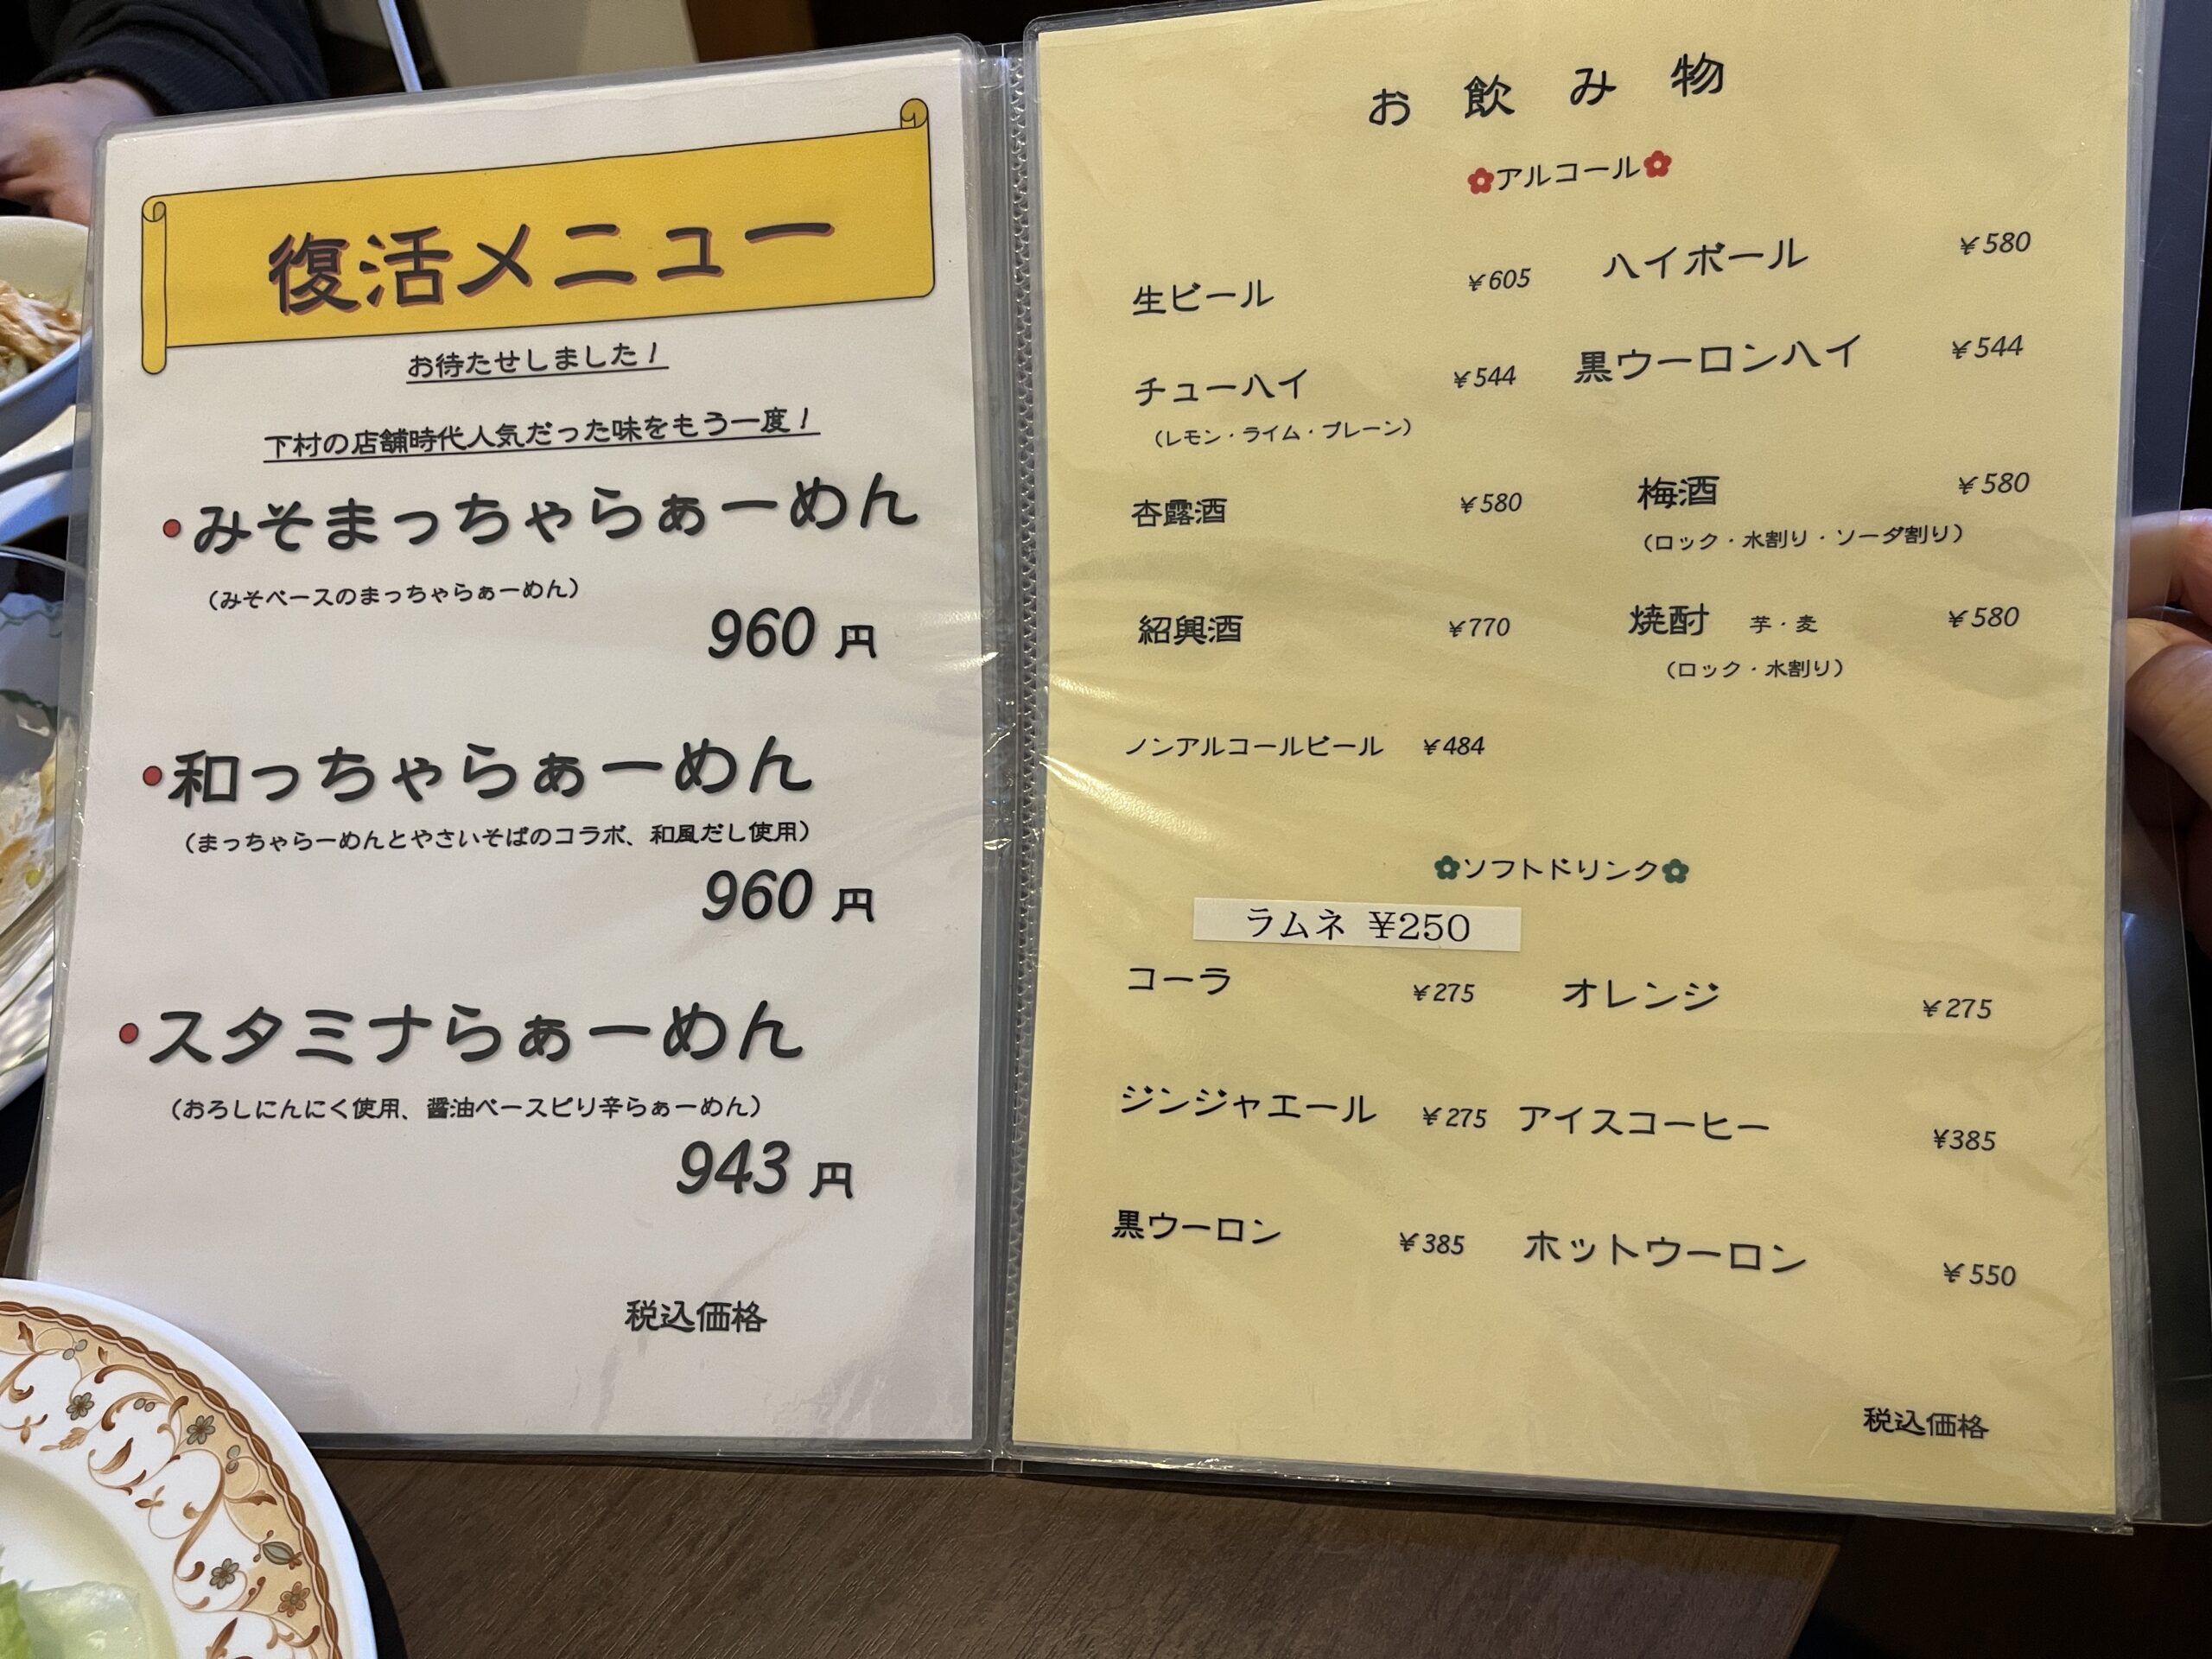 復活メニュー
お待たせしました！
下村の店舗時代人気だった味をもう一度！
•みそまっちゃらぁーめん
（みそベースのまっちゃらぁーめん）
960 円
•和っちゃらぁーめん
（まっちゃらーめんとやさいそばのコラボ、和風だし使用）
960 円
•スタミナらぁーめん
（おろしにんにく使用、醤油ベースピリ辛らぁーめん）
943 円
税込価格
お飲み物
✿アルコール✿
生ビール ¥605 ハイボール ¥580
チューハイ ¥544 黒ウーロンハイ ¥544
（レモン・ライム・プレーン）
杏露酒 ¥580 梅酒 ¥580
（ロック・水割り・ソーダ割り）
紹興酒 ¥770 焼酎 芋・麦 ¥580
（ロック・水割り）
ノンアルコールビール ¥484
✿ソフトドリンク✿
ラムネ ¥250
コーラ ¥275 オレンジ ¥275
ジンジャエール ¥275 アイスコーヒー ¥385
黒ウーロン ¥385 ホットウーロン ¥550
税込価格